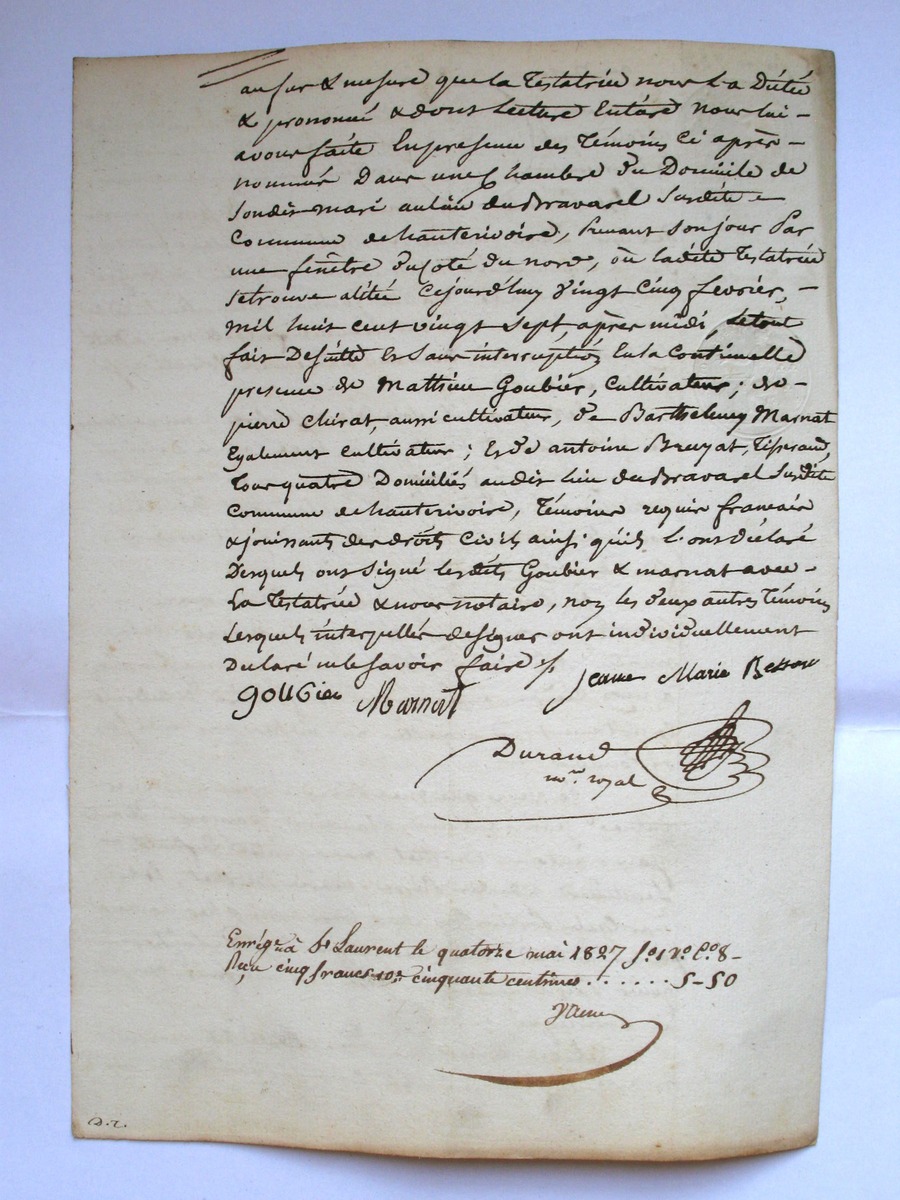 au fur & mesure que la Testatrice nous l'a Dicté
& prononcé & dont Lecture Entière nous lui -
avons faite En presence des Témoins Ci après -
nommés Dans une Chambre du Domicile de
Sondit mari au lieu du Bravarel Susdite
Commune de hauterivoire, Prenant Son jour Par
une fenêtre du coté du nord, où ladite Testatrice
Se trouve alitée Cejourd'huy Vingt Cinq fevrier, -
mil huit cent vingt Sept, après midi, Le tout
fait De suitte et Sans interruption En la Continuelle
presence de Mathieu Goubier, Cultivateur ; de -
pierre Chirat, aussi cultivateur, de Barthelemy Marnat
Egalement cultivateur ; Et de antoine Bruyat, Tisserand,
Tous quatre Domiciliés audit lieu du Bravarel Susdite
Commune de hauterivoire, Témoins requis francais
& jouissants des droits Civils ainsi qu'ils l'ont déclaré
Desquels ont Signé lesdits Goubier & marnat avec -
La Testatrice & nous notaire, non les deux autres Témoins
Lesquels interpellés de signer ont individuellement
Declaré ne le Savoir faire
Jeanne Marie Besson
goubier Marnat
Durand
nore royal
Enrégé à St Laurent le quatorze mai 1827 fo 12 vo Co 8 -
Reçu cinq francs 10e cinquante centimes . . . . . . . 5-50
D.r.